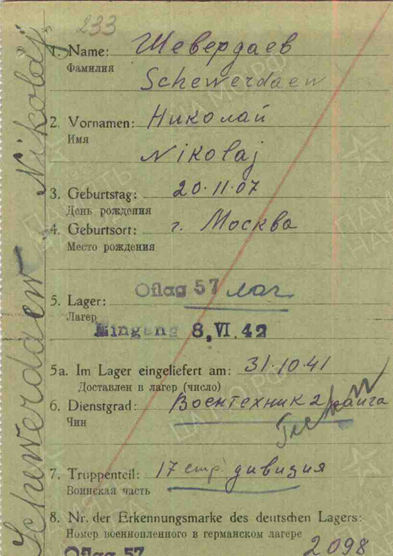 233
1. Name: Шевердаев
Фамилия
Schewerdaew
2. Vornamen: Николай
Имя
Nikolaj
3. Geburtstag: 20.11.07
День рождения
4. Geburtsort: г. Москва
Место рождения
5. Lager: Oflag 57
Лагер
Eingang 8. VI. 42
5a. Im Lager eingeliefert am: 31.10.41
Доставлен в лагерь (число)
6. Dienstgrad: Воентехник 2 ранга
Чин
7. Truppenteil: 17 стр. дивизия
Воинская часть
8. Nr. der Erkennungsmarke des deutschen Lagers:
Номер военнопленного в германском лагере
Oflag 57 2098
Schewerdaew Nikolaj